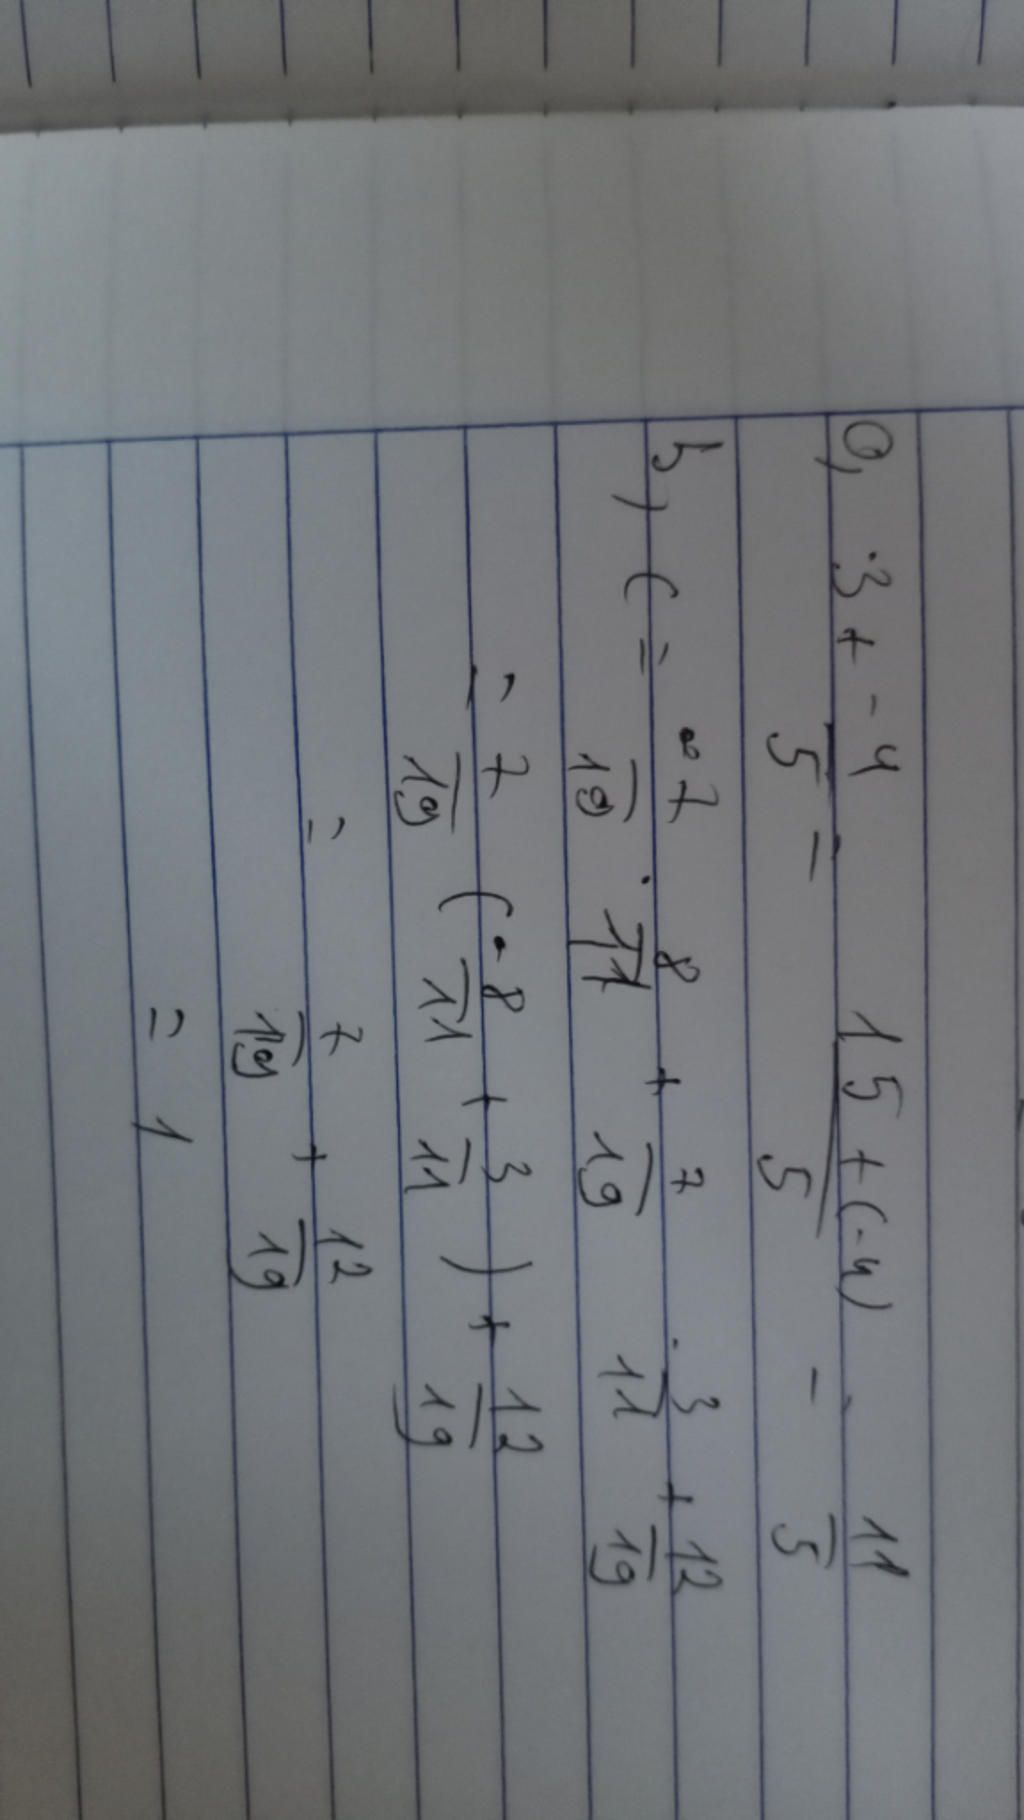 a, 3 + -4/5 = 15+(-4)/5 = 11/5
b, C = 7/19 · 8/11 + 7/19 · 3/11 + 12/19
= 7/19 (8/11 + 3/11) + 12/19
= 7/19 + 12/19
= 1